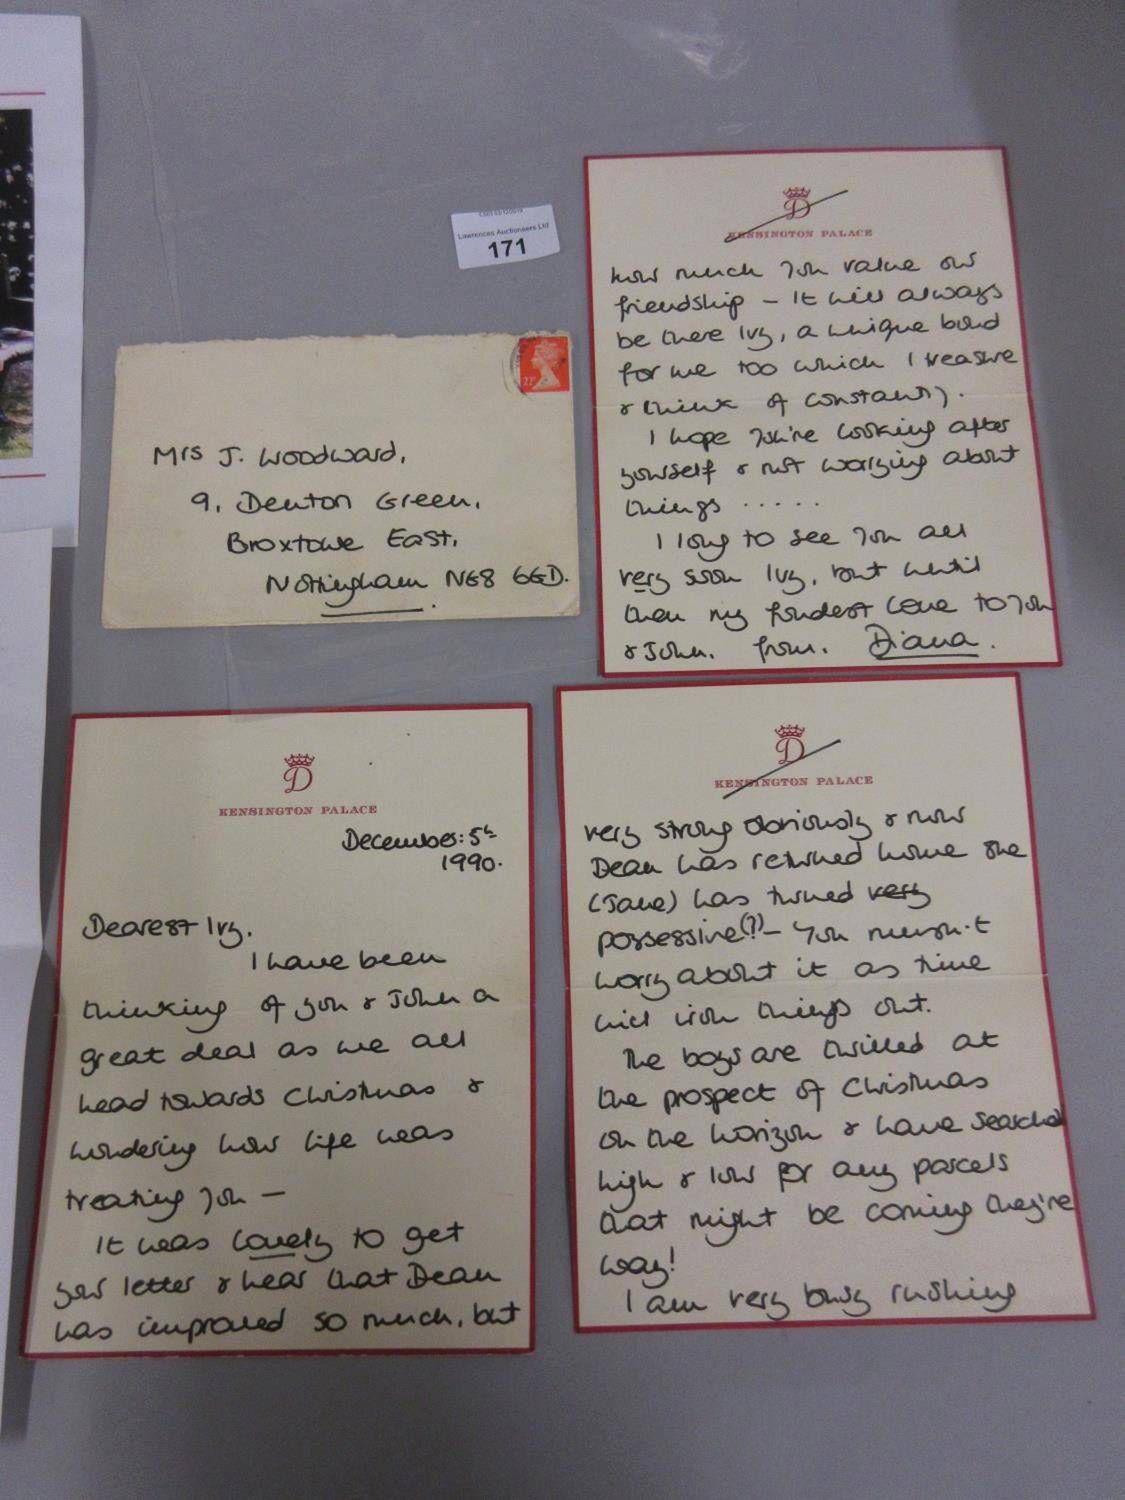 Lawrences Auctioneers Ltd
171
Mrs J. Woodward,
9, Denton Green,
Broxtowe East,
Nottingham NG8 6GD.
D
KENSINGTON PALACE
December: 5th
1990.
Dearest Ivy,
I have been
thinking of you & John a
great deal as we all
head towards Christmas &
wondering how life was
treating you —
It was lovely to get
your letter & hear that Dean
has improved so much, but
D
KENSINGTON PALACE
very strong obviously & now
Dean has returned home she
(Jane) has turned very
possessive(?) – You mustn't
worry about it as time
will iron things out.
The boys are thrilled at
the prospect of Christmas
on the horizon & have searched
high & low for any parcels
that might be coming they're
way!
I am very busy rushing
D
KENSINGTON PALACE
how much you value our
friendship – It will always
be there Ivy, a unique bond
for me too which I treasure
& think of constantly.
I hope you're looking after
yourself & not worrying about
things .....
I long to see you all
very soon Ivy, but until
then my fondest love to you
& John. from. Diana.